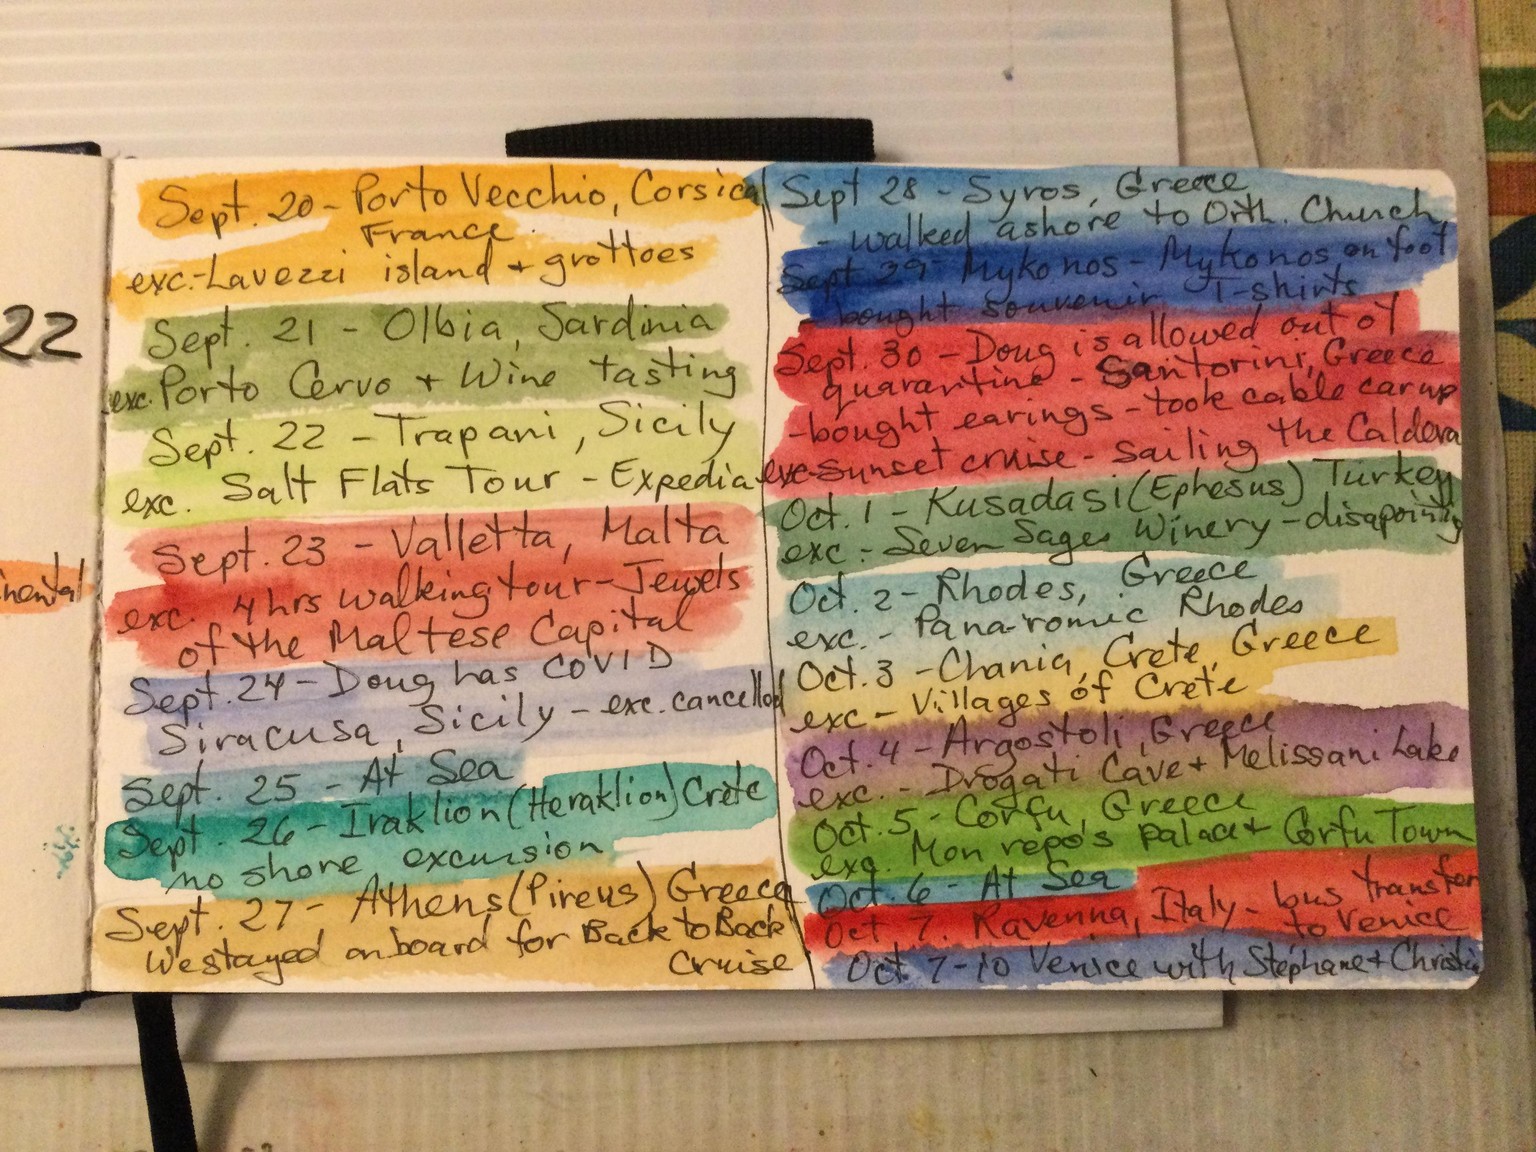 22
Sept. 20 - Porto Vecchio, Corsica
France.
exc. - Lavezzi island + grottoes
Sept. 21 - Olbia, Sardinia
exc. Porto Cervo + Wine tasting
Sept. 22 - Trapani, Sicily
exc. Salt Flats Tour - Expedia
Sept. 23 - Valletta, Malta
exc. 4 hrs walking tour - Jewels
of the Maltese Capital
Sept. 24 - Doug has COVID
Siracusa, Sicily - exc. cancelled
Sept. 25 - At Sea
Sept. 26 - Iraklion (Heraklion) Crete
no shore excursion
Sept. 27 - Athens (Pireus) Greece
We stayed onboard for Back to Back
Cruise
Sept 28 - Syros, Greece
- walked ashore to Orth. Church
Sept 29 - Mykonos - Mykonos on foot
- bought souvenir T-shirts
Sept. 30 - Doug is allowed out of
quarantine - Santorini, Greece
- bought earings - took cable car up
exc - Sunset cruise - Sailing the Caldera
Oct. 1 - Kusadasi (Ephesus) Turkey
exc - Seven Sages Winery - disapointing
Oct. 2 - Rhodes, Greece
exc. - Panaromic Rhodes
Oct. 3 - Chania, Crete, Greece
exc - Villages of Crete
Oct. 4 - Argostoli, Greece
exc. - Drogati Cave + Melissani Lake
Oct. 5 - Corfu, Greece
exc. Mon repo's palace + Corfu Town
Oct. 6 - At Sea
Oct 7. Ravenna, Italy - bus transfer
to Venice
Oct. 7-10 Venice with Stéphane + Christia